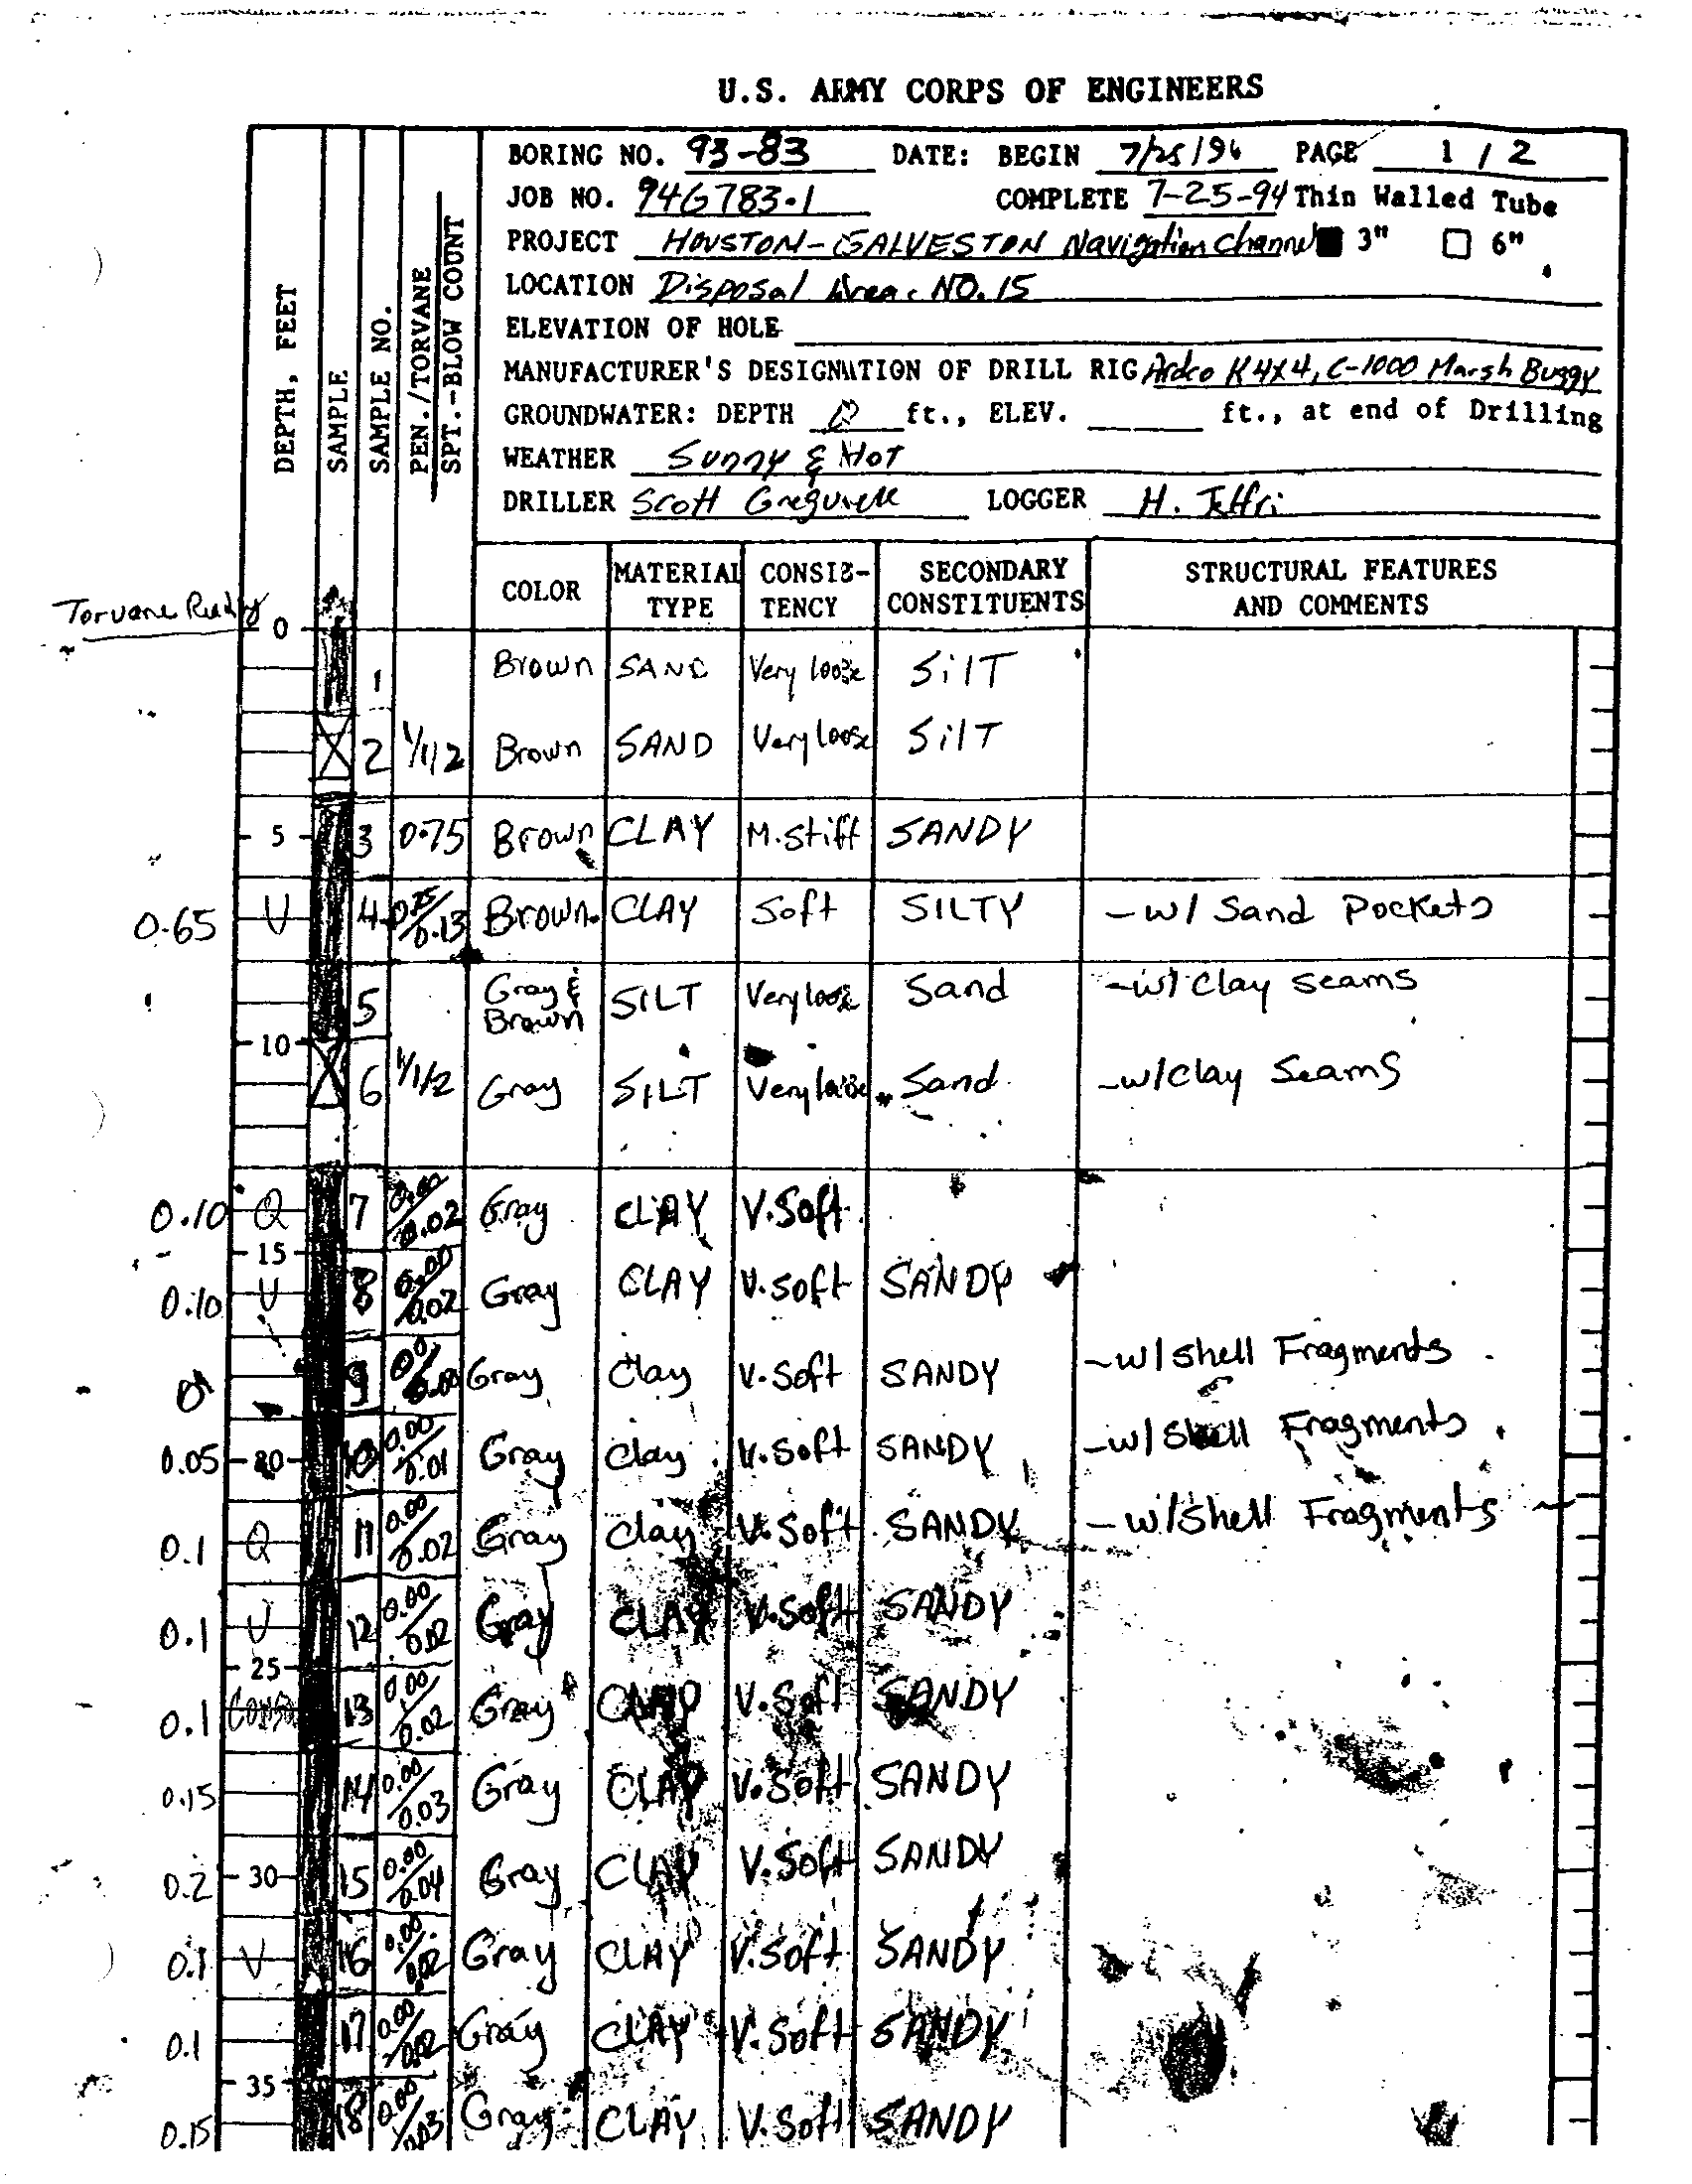 U.S. ARMY CORPS OF ENGINEERS
BORING NO. 93-83 DATE: BEGIN 7/25/94 PAGE 1 / 2
JOB NO. 94G783.1 COMPLETE 7-25-94 Thin Walled Tube
PROJECT HOUSTON-GALVESTON Navigation Channel 3" 6"
LOCATION Disposal Area NO. 15
ELEVATION OF HOLE
MANUFACTURER'S DESIGNATION OF DRILL RIG Ardco K 4X4, C-1000 Marsh Buggy
GROUNDWATER: DEPTH 0 ft., ELEV. ft., at end of Drilling
WEATHER Sunny & HOT
DRILLER Scott LOGGER H.
DEPTH, FEET
SAMPLE
SAMPLE NO.
PEN./TORVANE
SPT.-BLOW COUNT
COLOR MATERIAL TYPE CONSIS-TENCY SECONDARY CONSTITUENTS STRUCTURAL FEATURES AND COMMENTS
Torvane Reading
0
1 Brown SAND Very loose SilT
2 1/1/2 Brown SAND Very loose SilT
5 3 0.75 Brown CLAY M. Stiff SANDY
0.65 U 4 0.25/0.13 Brown CLAY Soft SILTY -w/ Sand Pockets
5 Gray & Brown SILT Very loose Sand -w/ Clay seams
10
6 1/1/2 Gray SILT Very loose Sand -w/clay Seams
0.10 Q 7 0.00/0.02 Gray CLAY V.Soft
15
0.10 U 8 0.00/0.02 Gray CLAY V.Soft SANDY
0 9 0.0/0.00 Gray Clay V.Soft SANDY -w/shell Fragments
0.05 20 10 0.00/0.01 Gray Clay V.Soft SANDY -w/Shell Fragments
0.1 Q 11 0.00/0.02 Gray Clay V.Soft SANDY -w/shell Fragments
0.1 U 12 0.00/0.02 Gray CLAY V.Soft SANDY
25
0.1 13 0.00/0.02 Gray CLAY V.Soft SANDY
0.15 14 0.00/0.03 Gray CLAY V.Soft SANDY
0.2 30 15 0.00/0.04 Gray CLAY V.Soft SANDY
0.1 U 16 0.00/0.02 Gray CLAY V.Soft SANDY
0.1 17 0.00/0.02 Gray CLAY V.Soft SANDY
35
0.15 18 0.00/0.03 Gray CLAY V.Soft SANDY